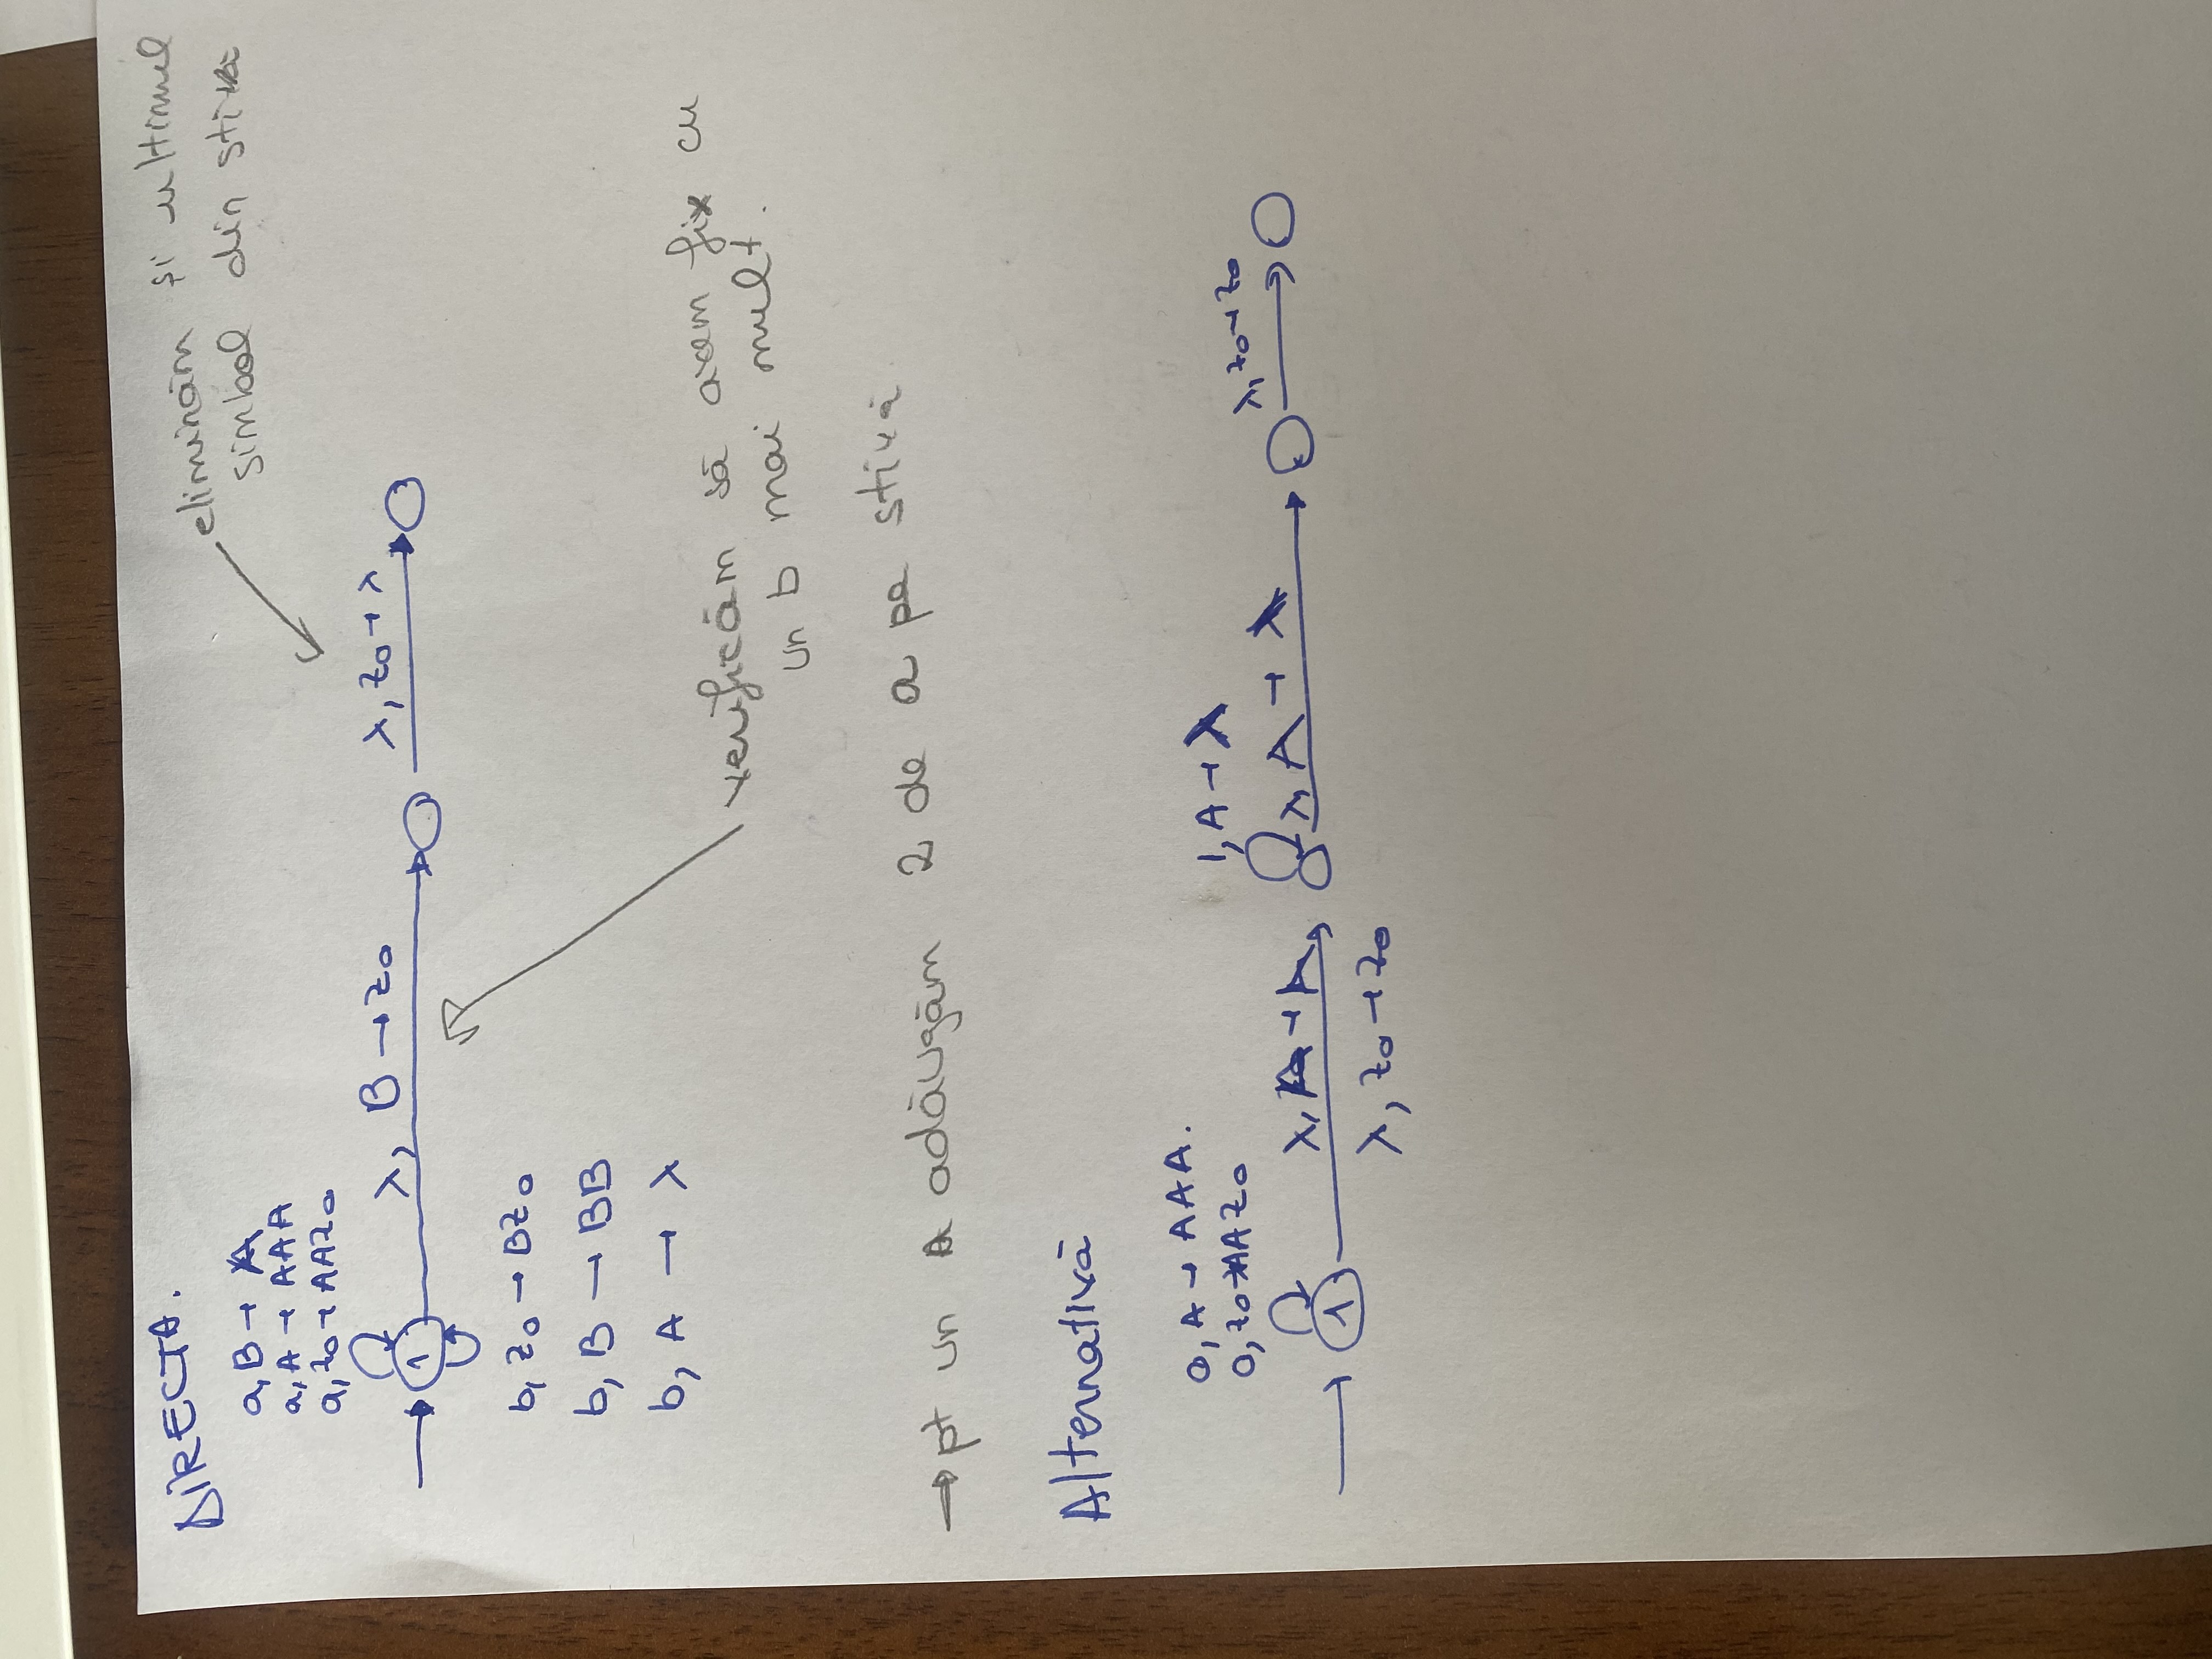 DIRECTA.
eliminăm și ultimul
simbol din stivă
a, B → A
a, A → AAA
a, z₀ → AAz₀
1
λ, B → z₀
λ, z₀ → λ
b, z₀ → Bz₀
b, B → BB
b, A → λ
verificăm să avem fix cu
un b mai mult.
→ pt un A adăugăm 2 de a pe stivă
Alternativă
0, A → AAA.
0, z₀ → AAz₀
1
λ, A → A
λ, z₀ → z₀
1, A → λ
λ, A → λ
λ, z₀ → z₀